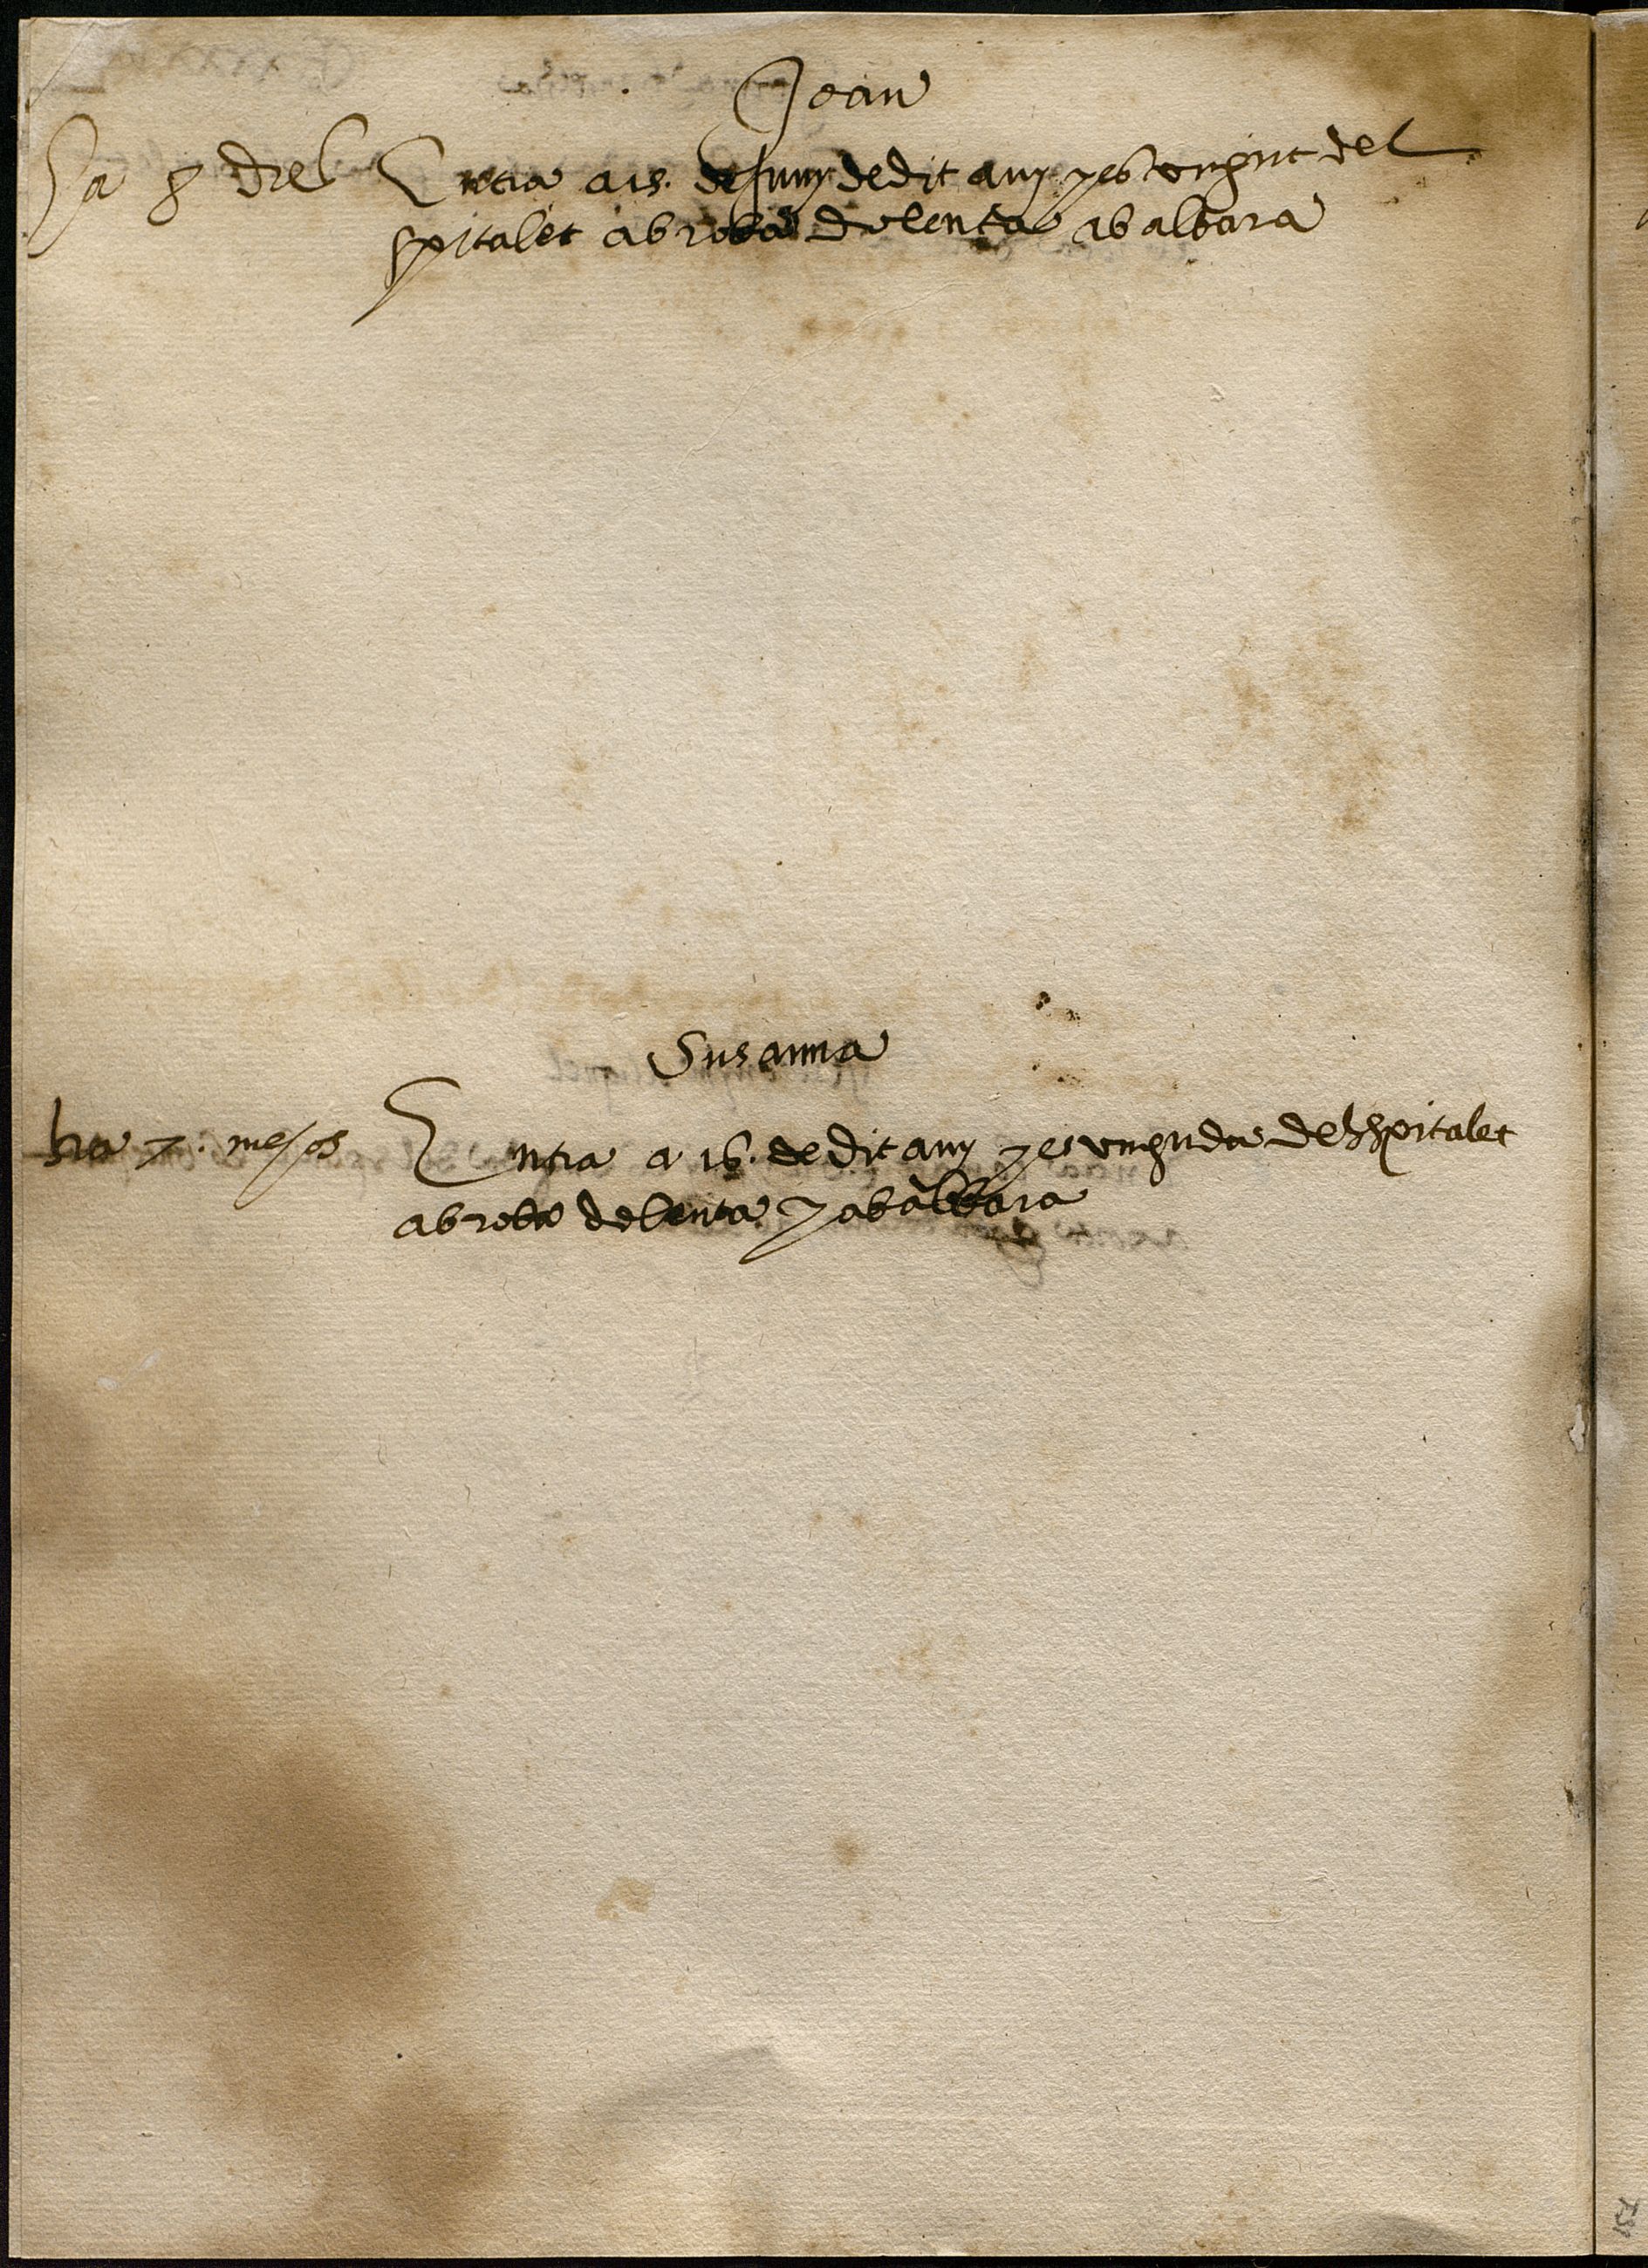 Joan
Ha 8 dies Entra a 15. de juny dedit any y es vengut del
spitalet ab roba dolenta ab albara
Susanna
ha 7. mesos Entra a 16. de dit any y es venguda del spitalet
ab roba dolenta y ab albara